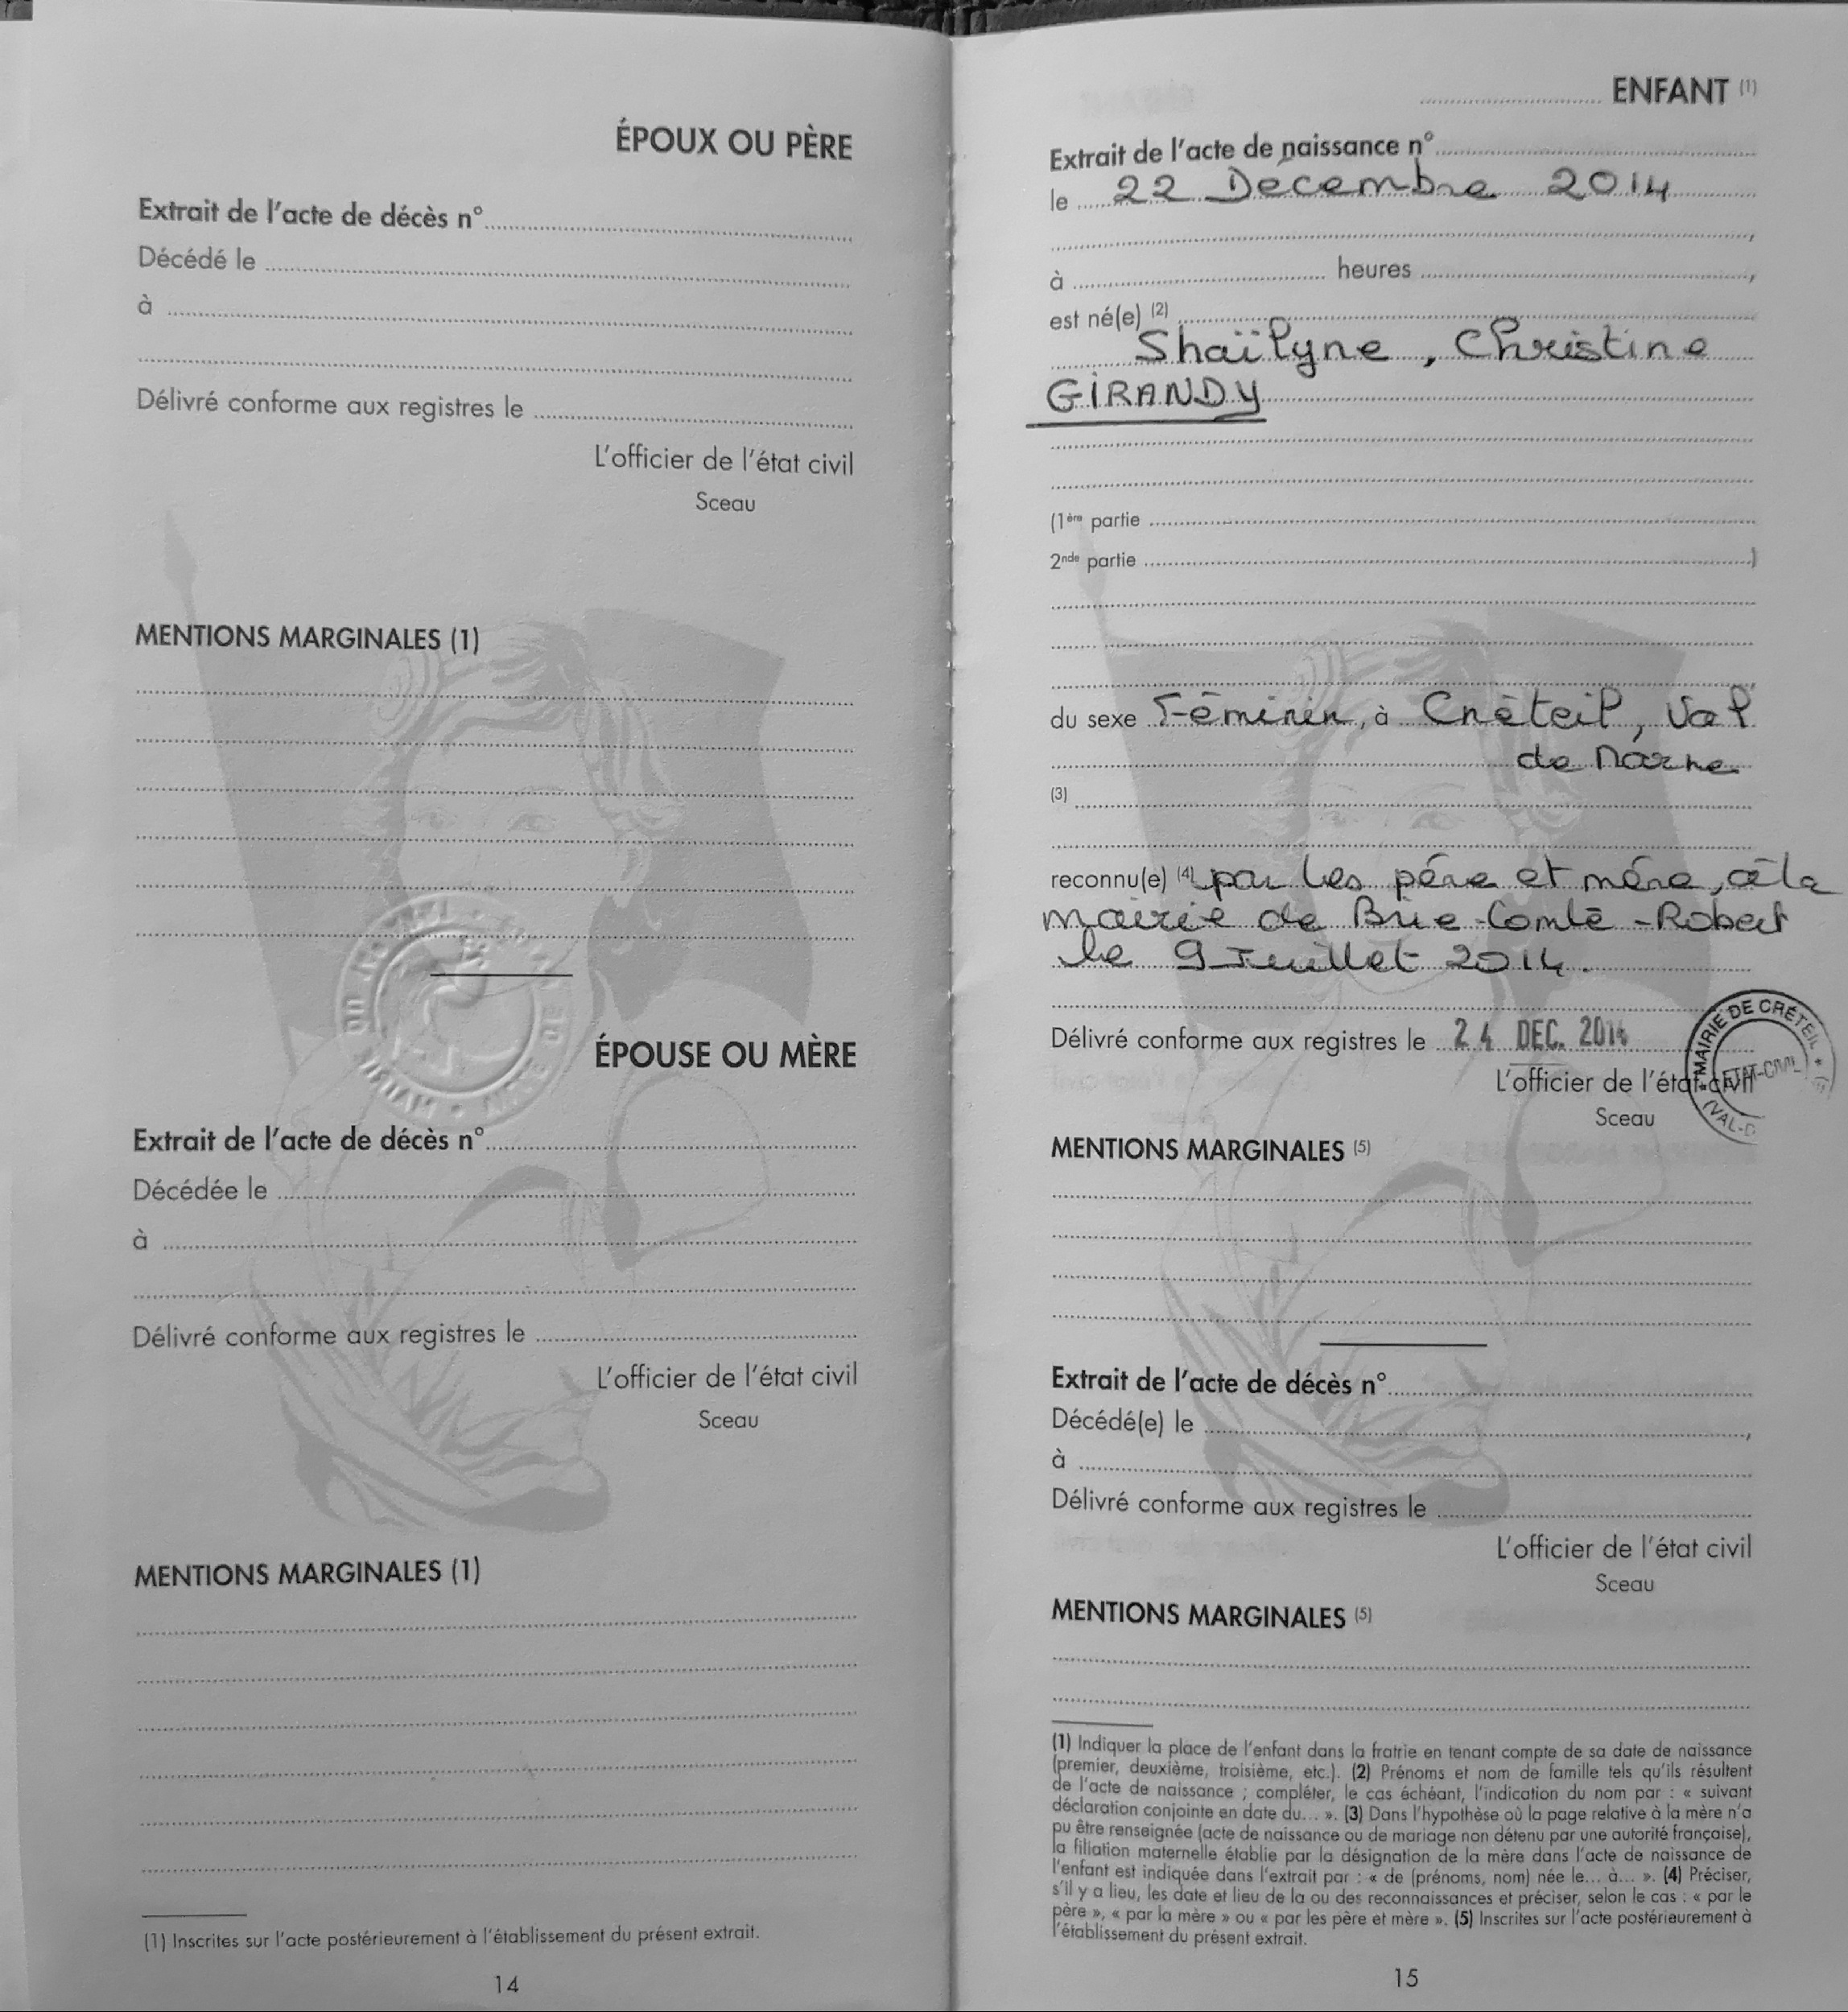 ÉPOUX OU PÈRE
Extrait de l'acte de décès n°
Décédé le
à
Délivré conforme aux registres le
L'officier de l'état civil
Sceau
MENTIONS MARGINALES (1)
ÉPOUSE OU MÈRE
Extrait de l'acte de décès n°
Décédée le
à
Délivré conforme aux registres le
L'officier de l'état civil
Sceau
MENTIONS MARGINALES (1)
(1) Inscrites sur l'acte postérieurement à l'établissement du présent extrait.
14
ENFANT (1)
Extrait de l'acte de naissance n°
le 22 Décembre 2014
,
à heures ,
est né(e) (2)
Shaïlyne, Christine
GIRANDY
(1ère partie
2nde partie )
,
du sexe Féminin, à Créteil, Val
de Marne
(3)
reconnu(e) (4) par les père et mère, à la
mairie de Brie-Comte-Robert
le 9 Juillet 2014.
Délivré conforme aux registres le 24 DEC. 2014
L'officier de l'état civil
Sceau
MAIRIE DE CRÉTEIL
ETAT-CIVIL
MENTIONS MARGINALES (5)
Extrait de l'acte de décès n°
Décédé(e) le ,
à
Délivré conforme aux registres le
L'officier de l'état civil
Sceau
MENTIONS MARGINALES (5)
(1) Indiquer la place de l'enfant dans la fratrie en tenant compte de sa date de naissance
(premier, deuxième, troisième, etc.). (2) Prénoms et nom de famille tels qu'ils résultent
de l'acte de naissance ; compléter, le cas échéant, l'indication du nom par : « suivant
déclaration conjointe en date du... ». (3) Dans l'hypothèse où la page relative à la mère n'a
pu être renseignée (acte de naissance ou de mariage non détenu par une autorité française),
la filiation maternelle établie par la désignation de la mère dans l'acte de naissance de
l'enfant est indiquée dans l'extrait par : « de (prénoms, nom) née le... à... ». (4) Préciser,
s'il y a lieu, les date et lieu de la ou des reconnaissances et préciser, selon le cas : « par le
père », « par la mère » ou « par les père et mère ». (5) Inscrites sur l'acte postérieurement à
l'établissement du présent extrait.
15